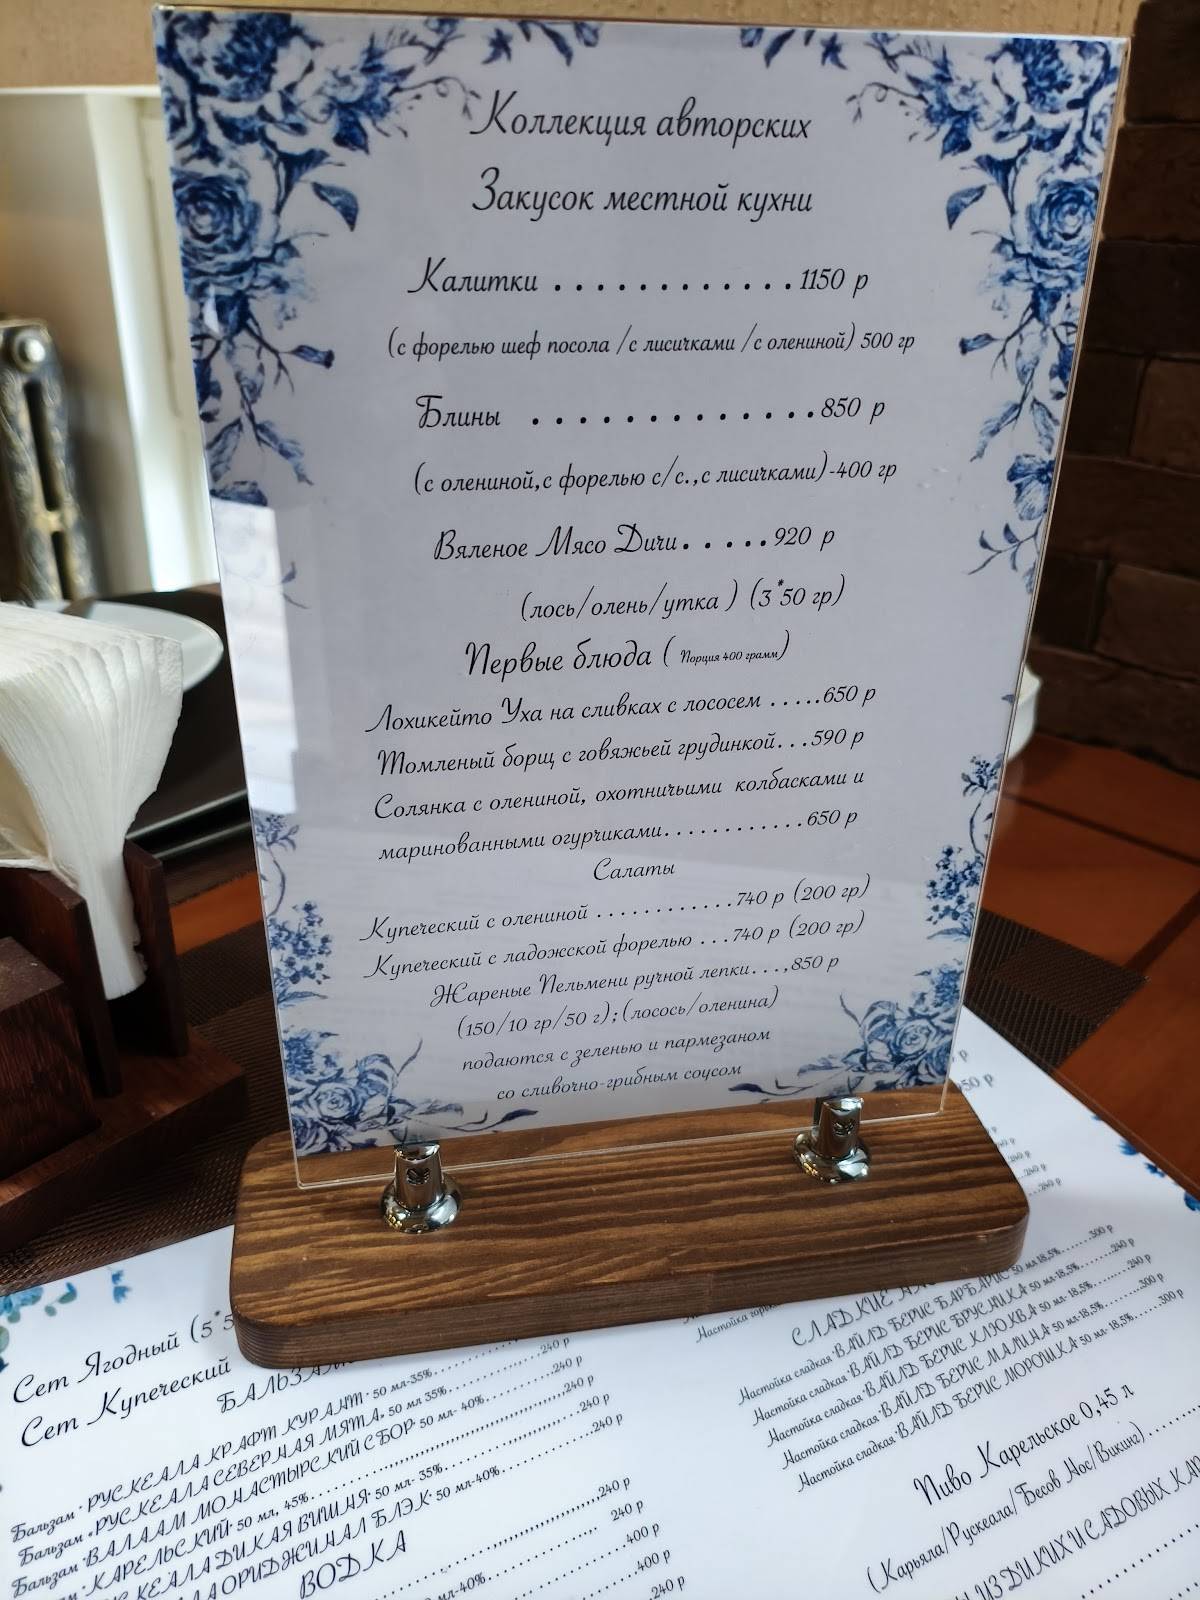 Коллекция авторских
Закусок местной кухни
Калитки . . . . . . . . . . . . 1150 р
(с форелью шеф посола /с лисичками /с олениной) 500 гр
Блины . . . . . . . . . . . . . . 850 р
(с олениной,с форелью с/с.,с лисичками)-400 гр
Вяленое Мясо Дичи. . . . . 920 р
(лось/олень/утка ) (3*50 гр)
Первые блюда ( Порция 400 грамм)
Лохикейто Уха на сливках с лососем . . . . .650 р
Томленый борщ с говяжьей грудинкой. . .590 р
Солянка с олениной, охотничьими колбасками и
маринованными огурчиками. . . . . . . . . . . . 650 р
Салаты
Купеческий с олениной . . . . . . . . . . . . 740 р (200 гр)
Купеческий с ладожской форелью . . . 740 р (200 гр)
Жареные Пельмени ручной лепки. . . ,850 р
(150/10 гр/50 г);(лосось/оленина)
подаются с зеленью и пармезаном
со сливочно-грибным соусом
Сет Ягодный (5*5
Сет Купеческий
Бальзам "РУСКЕАЛА КРАФТ КУРАНТ" 50 мл-35%
240 р
Бальзам "РУСКЕАЛА СЕВЕРНАЯ МЯТА" 50 мл 35%
240 р
Бальзам "ВАЛААМ МОНАСТЫРСКИЙ СБОР" 50 мл- 40%
240 р
КАРЕЛЬСКИЙ" 50 мл, 45%
240 р
ДИКАЯ ВИШНЯ" 50 мл- 35%
240 р
ОРИДЖИНАЛ БЛЭК" 50 мл-40%
240 р
ВОДКА
240 р
240 р
мл-40%
400 р
400 р
240 р
240 р
240 р
240 р
240 р
СЛАДКИЕ
Настойка сладкая "ВАЙЛД БЕРИС БАРБАРИС" 50 мл 18,5%.......300 р
Настойка сладкая "ВАЙЛД БЕРИС БРУСНИКА" 50 мл-18,5%.......240 р
Настойка сладкая "ВАЙЛД БЕРИС КЛЮКВА" 50 мл- 18,5%.......240 р
Настойка сладкая "ВАЙЛД БЕРИС МАЛИНА" 50 мл-18,5%.......300 р
Настойка сладкая "ВАЙЛД БЕРИС МОРОШКА" 50 мл- 18,5%.......300 р
Пиво Карельское 0,45 л
(Карьяла/Рускеала/Бесов Нос/Викинг)
ИЗ ДИКИХ И САДОВЫХ